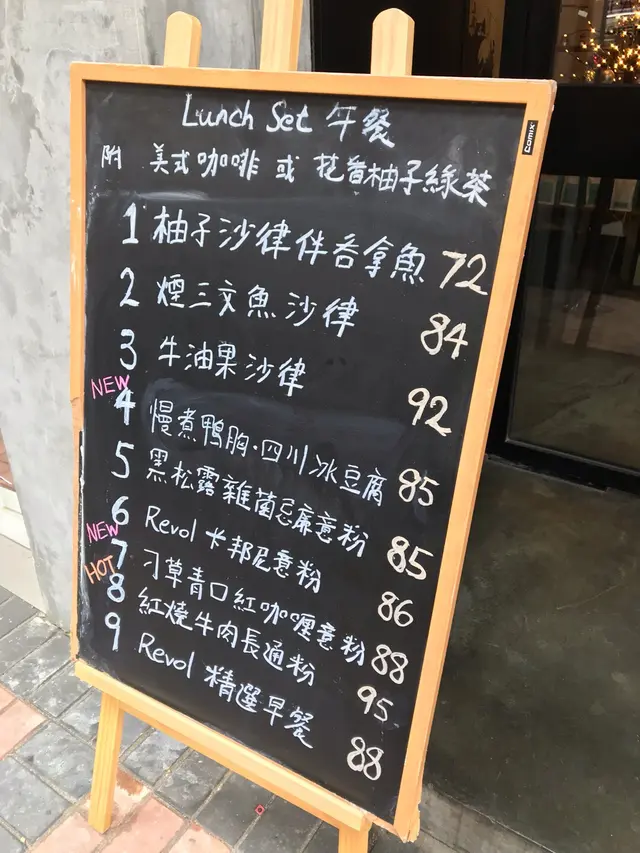 Lunch Set 午餐
COMIX
附 美式咖啡 或 花香柚子綠茶
1 柚子沙律伴吞拿魚 72
2 煙三文魚沙律 84
3 牛油果沙律 92
NEW
4 慢煮鴨胸·四川冰豆腐 85
5 黑松露雜菌忌廉意粉 85
6 Revol 卡邦尼意粉 86
NEW
7 刁草青口紅咖喱意粉 88
HOT
8 紅燒牛肉長通粉 95
9 Revol 精選早餐 88